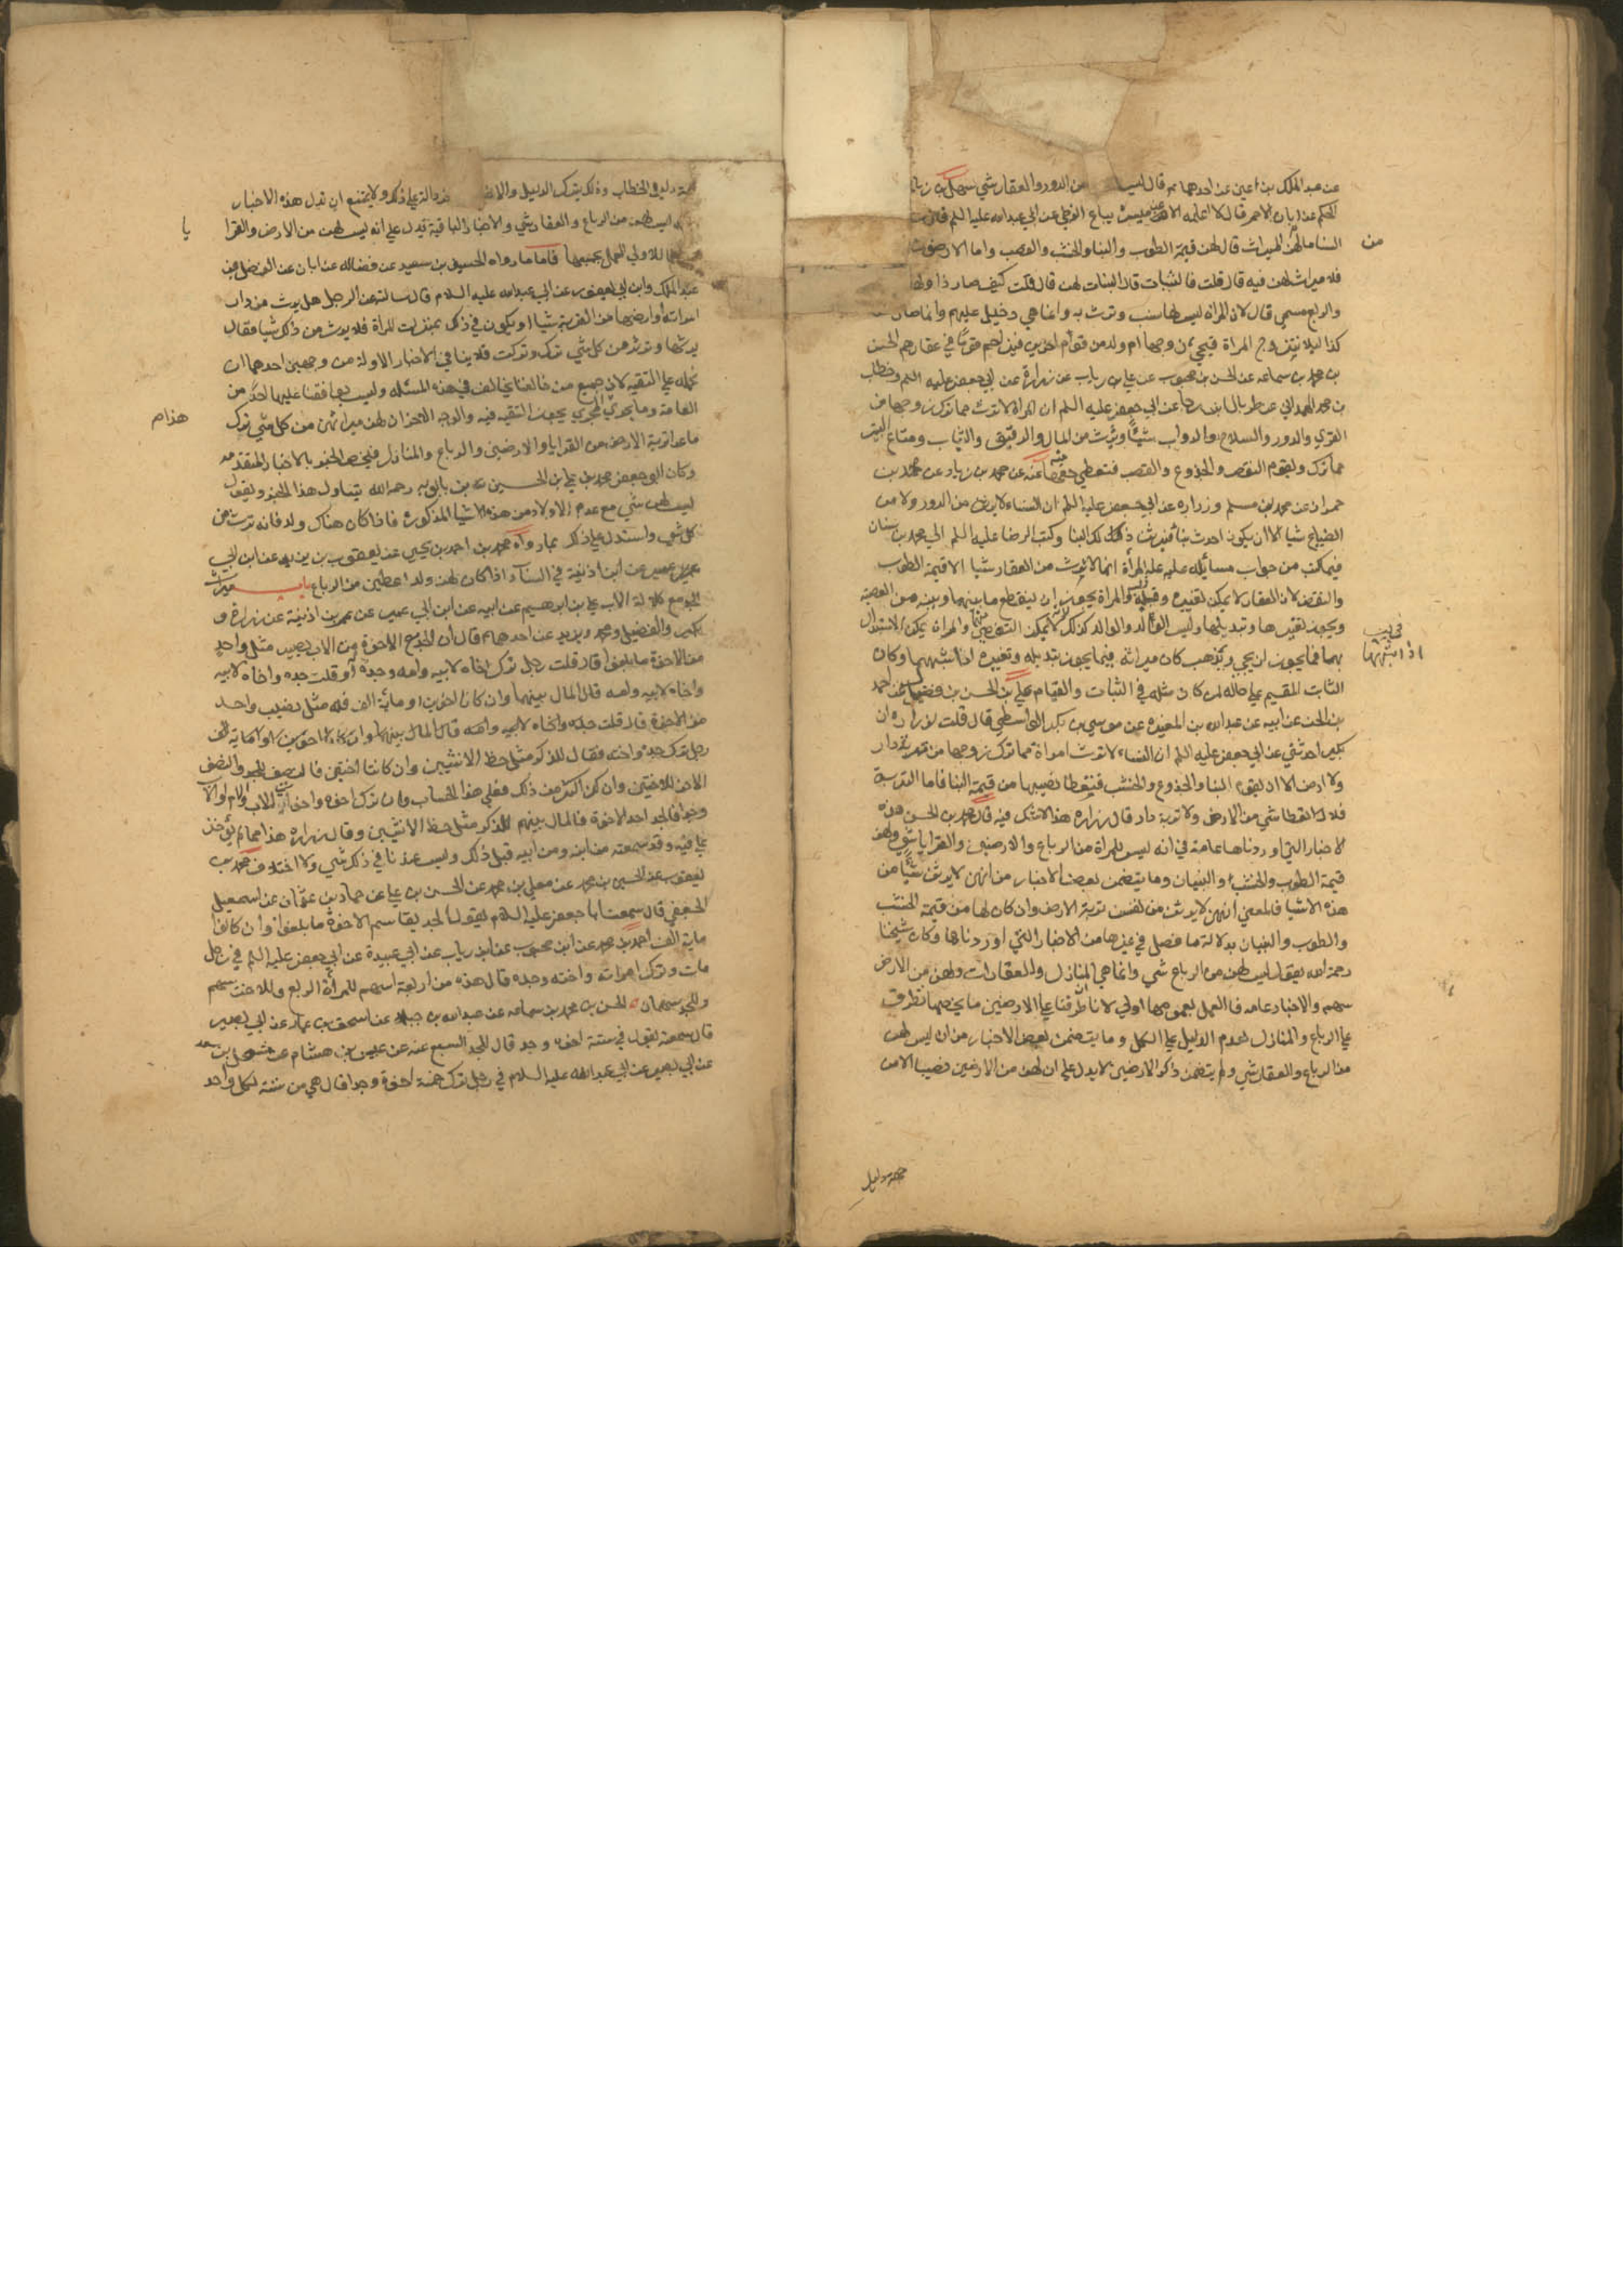 عن عبد الملك بن اعين عن احدهما ع قال ليس من الدور والعقار شي سهل بن زياد
الحكم عن ابان الاحمر قال لا اعلمه الا عن ميسرة بياع الزطي عن ابي عبد الله عليه السلم قال
من
النسا ما لهن من الميراث قال لهن قيمة الطوب والبنا والخشب والقصب واما الارضون
فلا ميراث لهن فيه قال قلت فالثياب قال الثياب لهن قال قلت كيف صار ذا ولها
والربع مسمى قال لان المراة ليس لها نسب وترث به وانما هي دخيل عليهم وانما صار
كذا ليلا تتزوج المراة فيجي زوجها او ولد من قوم اخرين فيزاحم قوما في عقارهم الحسن
بن محمد بن سماعه عن الحسن بن محبوب عن علي بن رياب عن زرارة عن ابي جعفر عليه السلم وخطاب
بن محمد الهمداني عن طربال بن رجا عن ابي جعفر عليه السلم ان المراة لا ترث مما ترك زوجها من
القري والدور والسلاح والدواب شيئا وترث من المال والرقيق والثياب ومتاع البيت
مما ترك ويقوم النقض والجذوع والقصب فتعطي حقها منه عنه عن محمد بن زياد عن محمد بن
حمران عن محمد بن مسلم وزرارة عن ابي جعفر عليه السلم ان النساء لا يرثن من الدور ولا من
الضياع شيا الا ان يكون احدث بنا فيرثن ذلك البنا وكتب الرضا عليه السلم الي محمد بن سنان
فيما كتب من جواب مسايله علة المرأة انها لا ترث من العقار شيا الا قيمة الطوب
والنقض لان العقار لا يمكن تغييره وقلبه والمراة يجوز ان ينقطع ما بينها وبينه من العصمة
ويجوز تغييرها وتبديلها وليس الولد والوالد كذلك لانه لا يمكن التفصي منهما والمراة يمكن الاستبدال
بها فما يجوز ان يجي ويذهب كان ميراثه فيما يجوز تبديله وتغييره اذا اشبهها وكان
اذا اشبهها
الثابت المقيم علي حاله لمن كان مثله في الثبات والقيام علي بن الحسن بن فضال عن احمد
بن الحسن عن ابيه عن عبد الله بن المغيرة عن موسي بن بكر الواسطي قال قلت لزرارة ان
بكيرا حدثني عن ابي جعفر عليه السلم ان النساء لا ترث امراة مما ترك زوجها من تربة دار
ولا ارض الا ان يقوم البنا والجذوع والخشب فتعطا نصيبها من قيمة البنا فاما التربة
فلا تعطا شي من الارض ولا تربة دار قال زرارة هذا لا شك فيه قال محمد بن الحسن هذه
الاخبار التي اوردناها عامة في انه ليس للمراة من الرباع والارضين والقرايا شي ولهن
قيمة الطوب والخشب والبنيان وما يتضمن بعض الاخبار من انهن لا يرثن شيئا من
هذه الاشيا فالمعني انهن لا يرثن من نفس تربة الارض وان كان لها من قيمة الخشب
والطوب والبنيان بدلالة ما فصل في غيرها من الاخبار التي اوردناها وكان شيخنا
رحمه الله يقول ليس لهن من الرباع شي وانما هي المنازل والعقارات ولهن من الارض
سهم والاخبار عامه فالعمل بعمومها اولي لانا ان طرقنا علي الارضين ما يخصها تطرق
علي الرباع والمنازل لعدم الدليل علي الكل وما يتضمن بعض الاخبار من ان ليس لهن
من الرباع والعقار شي ولم يتضمن ذكر الارضين لا يدل علي ان لهن من الارضين نصيب الا من
جهة دليل
جهة دليل الخطاب وذلك يترك لدليل والا دالة علي ذلك ولا يمتنع ان تدل هذه الاخبار
ليس لهن من الرباع والعقار شي والاخبار الباقية تدل علي انه ليس لهن من الارض والقرا
يا
الاولي العمل بجميعها فاما ما رواه الحسين بن سعيد عن فضاله عن ابان عن الفضل بن
عبد الملك وابن ابي يعفور عن ابي عبد الله عليه السلام قال سالته عن الرجل هل يرث من دار
امراته وارضها من التربة شيا او يكون في ذلك بمنزلة المراة فلا يرث من ذلك شيا فقال
يرثها وترثه من كل شي ترك وتركت فلا ينافي الاخبار الاولة من وجهين احدهما ان
نحمله علي التقية لان جميع من خالفنا يخالف في هذه المسئله وليس يوافقنا عليها احد من
العامة وما يجري المجري يجوز التقيه فيه والوجه الاخر ان لهن ميراثهن من كل شي ترك
هذا م
ما عدا تربة الارض من القرايا والارضين والرباع والمنازل فنخص الخبر بالاخبار المتقدمه
وكان ابو جعفر محمد بن علي بن الحسين بن بابويه رحمه الله يتاول هذا الخبر ويقول
ليس لهن شي مع عدم الاولاد من هذه الاشيا المذكورة فاذا كان هناك ولد فانه ترث من
كل شي واستدل علي ذلك بما رواه محمد بن احمد بن يحيي عن يعقوب بن يزيد عن ابن ابي
عمير عن ابن اذينة في النسآء اذا كان لهن ولد اعطين من الرباع باب ميراث
الجد مع كلالة الاب علي بن ابرهيم عن ابيه عن ابن ابي عمير عن عمر بن اذينة عن زرارة و
بكير والفضيل ومحمد وبريد عن احدهما ع قال ان الجد مع الاخوة من الاب يصير مثل واحد
من الاخوة ما بلغوا قال قلت رجل ترك اخاه لابيه وامه وجده او قلت جده واخاه لابيه
واخاه لابيه وامه قال المال بينهما وان كانا اخوين او ماية الف فله مثل نصيب واحد
من الاخوة قال قلت
رجل ترك جده واخته فقال للذكر مثل حظ الانثيين وان كانتا اختين فالنصف للجد والنصف
الاخر للاختين وان كن اكثر من ذلك فعلي هذا الحساب وان ترك اخوة واخوات لاب وام او لاب
وجدا فالجد احد الاخوة فالمال بينهم للذكر مثل حظ الانثيين وقال زرارة هذا مما لم يؤخذ
علي فيه وقد سمعته من ابنه ومن ابيه قبل ذلك وليس عندنا في ذلك شي ولا اختلاف محمد بن
يعقوب عن الحسين بن محمد عن معلي بن محمد عن الحسن بن علي عن حماد بن عثمان عن اسمعيل
الجعفي قال سمعت ابا جعفر عليه السلام يقول الجد يقاسم الاخوة ما بلغوا وان كانوا
ماية الف احمد بن محمد عن ابن محبوب عن ابن رياب عن ابي عبيدة عن ابي جعفر عليه السلم في رجل
مات وترك امراته واخته وجده قال هذه من اربعة اسهم للمرأة الربع وللاخت سهم
وللجد سهمان الحسن بن محمد بن سماعه عن عبد الله بن جبلة عن اسحق بن عمار عن ابي بصير
قال سمعته يقول في ستة اخوة وجد قال للجد السبع عنه عن عبيس بن هشام عن مشمعل بن سعد
عن ابي بصير عن ابي عبد الله عليه السلام في رجل ترك خمسة اخوة وجدا قال هي من ستة لكل واحد